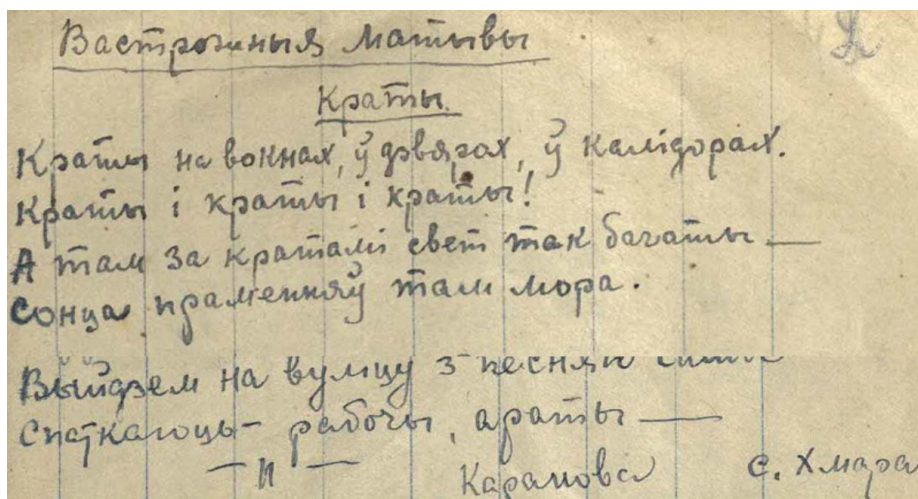 Вастрожныя матывы
Краты.
Краты на вокнах, ў дзвярох, ў калідорах.
Краты і краты і краты!
А там за кратамі свет так багаты —
Сонца праменняў там мора.
Выйдзем на вуліцу з песняй
Спаткаюць рабочы, араты —
— " —
Каранова С. Хмара